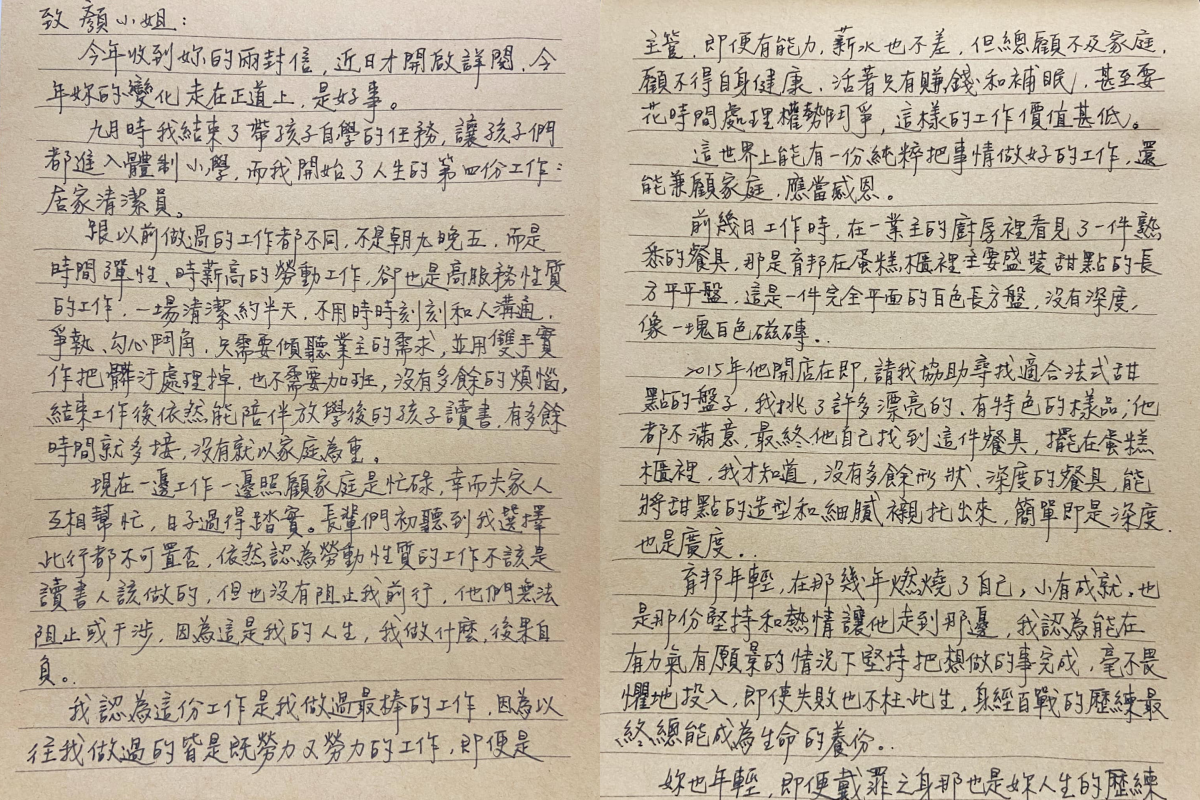 致 顏小姐：
今年收到妳的兩封信，近日才開啟詳閱，今
年妳的變化走在正道上，是好事。
九月時我結束了帶孩子自學的任務，讓孩子們
都進入體制小學，而我開始了人生的第四份工作：
居家清潔員。
跟以前做過的工作都不同，不是朝九晚五，而是
時間彈性、時薪高的勞動工作，卻也是高服務性質
的工作，一場清潔約半天，不用時時刻刻和人溝通，
爭執、勾心鬥角，只需要傾聽業主的需求，並用雙手實
作把髒汙處理掉，也不需要加班，沒有多餘的煩惱，
結束工作後依然能陪伴放學後的孩子讀書，有多餘
時間就多接，沒有就以家庭為重。
現在一邊工作一邊照顧家庭是忙碌，幸而夫家人
互相幫忙，日子過得踏實。長輩們初聽到我選擇
此行都不可置否，依然認為勞動性質的工作不該是
讀書人該做的，但也沒有阻止我前行，他們無法
阻止或干涉，因為這是我的人生，我做什麼，後果自
負。
我認為這份工作是我做過最棒的工作，因為以
往我做過的皆是既勞力又勞力的工作，即便是
主管，即便有能力，薪水也不差，但總顧不及家庭，
顧不得自身健康、活著只有賺錢和補眠，甚至要
花時間處理權勢鬥爭，這樣的工作價值甚低。
這世界上能有一份純粹把事情做好的工作，還
能兼顧家庭，應當感恩。
前幾日工作時，在一業主的廚房裡看見了一件熟
悉的餐具，那是育邦在蛋糕櫃裡主要盛裝甜點的長
方平平盤，這是一件完全平面的白色長方盤，沒有深度，
像一塊白色磁磚。
2015年他開店在即，請我協助尋找適合法式甜
點的盤子，我挑了許多漂亮的、有特色的樣品；他
都不滿意，最終他自己找到這件餐具，擺在蛋糕
櫃裡，我才知道，沒有多餘形狀、深度的餐具，能
將甜點的造型和細膩襯托出來，簡單即是深度，
也是廣度。
育邦年輕，在那幾年燃燒了自己，小有成就，也
是那份堅持和熱情讓他走到那邊，我認為能在
有力氣有願景的情況下堅持把想做的事完成，毫不畏
懼地投入，即使失敗也不枉此生，身經百戰的歷練最
終總能成為生命的養份。
妳也年輕，即便戴罪之身那也是妳人生的歷練